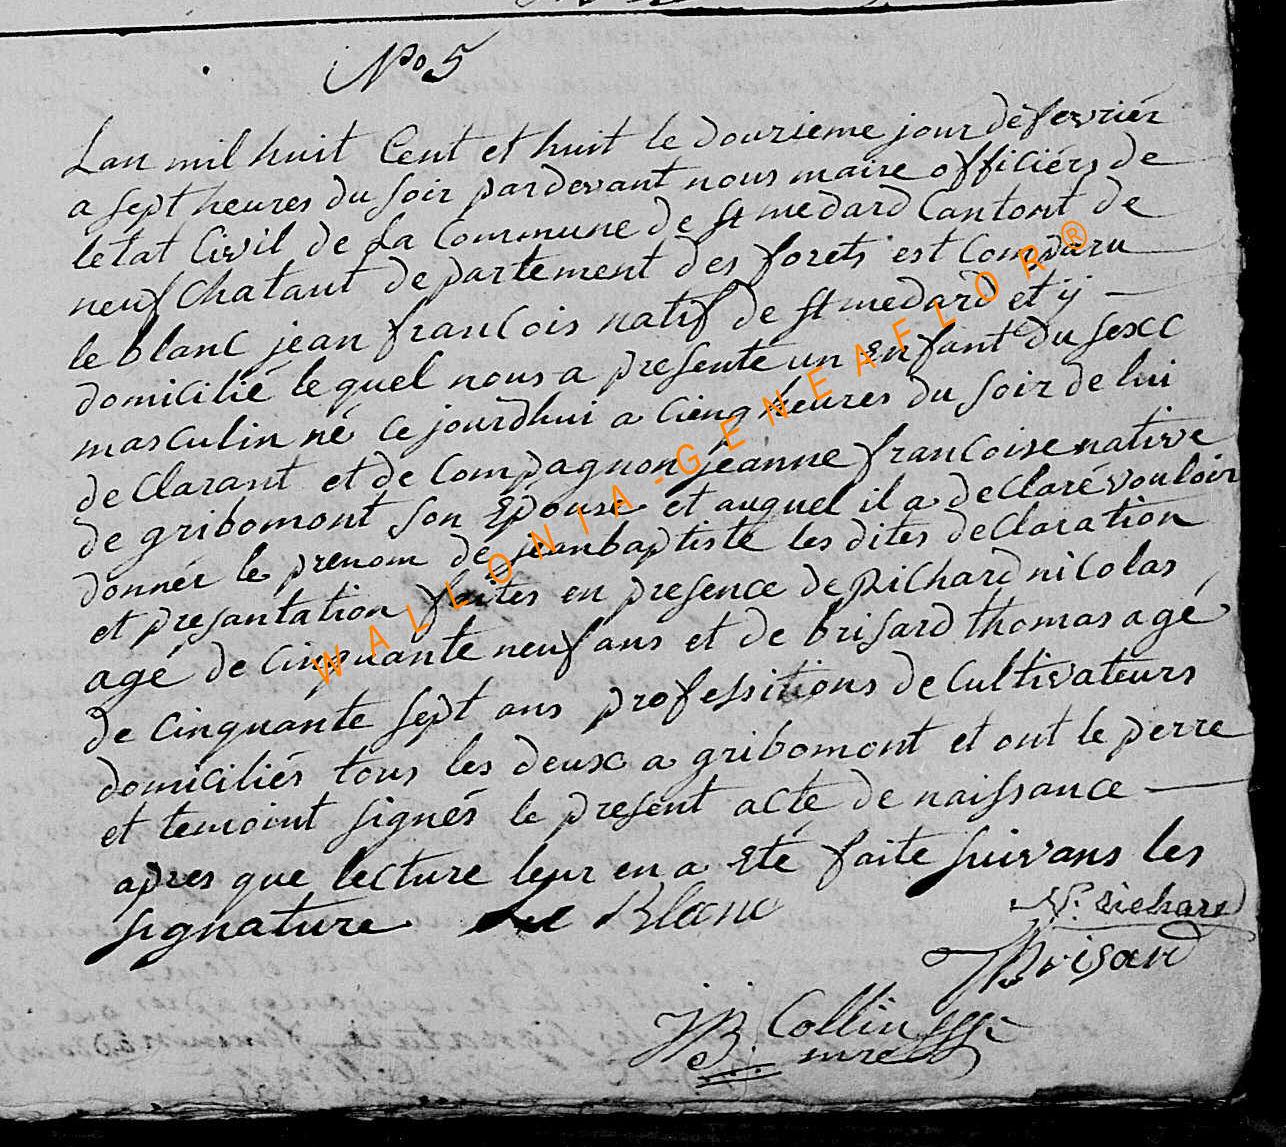 No 5
Lan mil huit Cent et huit le douzieme jour de fevrier
a sept heures du soir pardevant nous maire officiérs de
letat Civil de La Commune de st medard Cantont de
neufChatant departement des forets est Comparu
le blanc jean francois natif de st medard et ÿ
domicilié le quel nous a presente un Enfant du sexe
masculin né Ce jourdhui a Cienq heures du soir de lui
deClarant et de Compagnon jeanne francoise native
de gribomont son Epouse et auquel il a deClaré vouloir
donnér le prenom de jeanbaptiste les dites deClaration
et presantation faites en presence de Richard nicolas
agé de Cinquante neuf ans et de brisard thomas agé
de Cinquante sept ans professitions de Cultivateurs
domiciliés tous les deux a gribomont et ont le perre
et temoint signés le present acte de naissance
apres que lecture leur en a Eté faite suivans les
signature Le Blanc
N. Richard
Brisard
JB. Collin
mre
WALLONIA-GENEAFLOR®